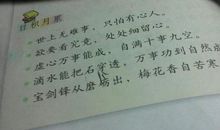 日积月累
世上无难事，只怕有心人。
欲要看究竟，处处细留心。
虚心万事能成，自满十事九空。
滴水能把石穿透，万事功到自然
宝剑锋从磨砺出，梅花香自苦寒